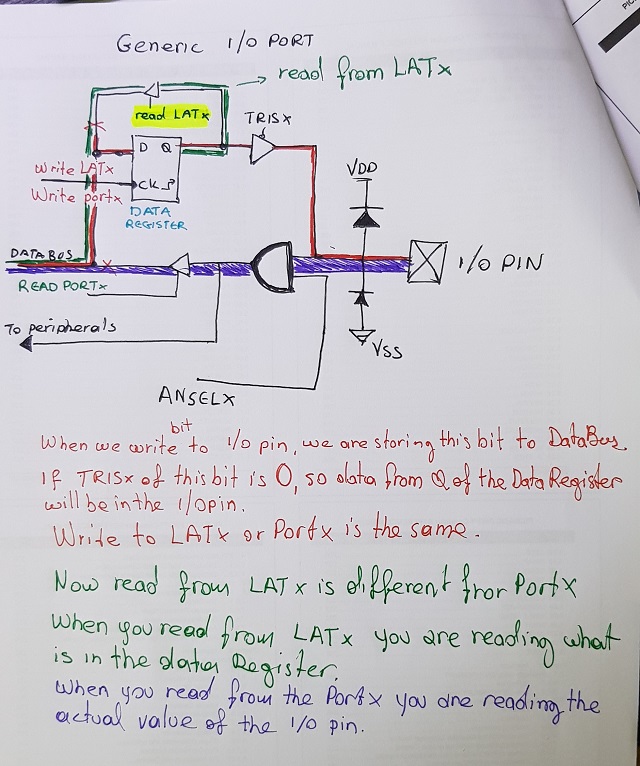 Generic I/O PORT
read from LATx
read LATx
TRISx
D Q
Write LATx
Write portx
CK
DATA
REGISTER
VDD
DATABUS
READ PORTx
I/O PIN
To peripherals
VSS
ANSELx
bit
When we write to I/O pin, we are storing this bit to DataBus
If TRISx of this bit is 0, so data from Q of the Data Register
will be in the I/O pin.
Write to LATx or Portx is the same.
Now read from LATx is different fror Portx
When you read from LATx you are reading what
is in the data Register.
When you read from the Portx you are reading the
actual value of the I/O pin.